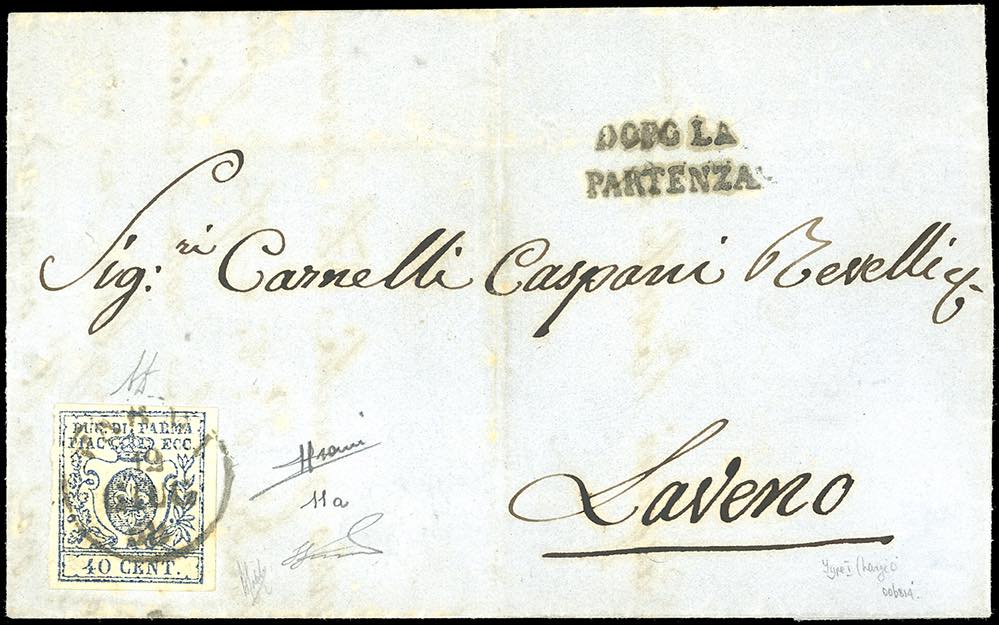 DOPO LA
PARTENZA
Sig:ri Carnelli Caspani Revelli
Laveno
DUC. DI PARMA
PIAC. ECC.
19
40 CENT.
11a